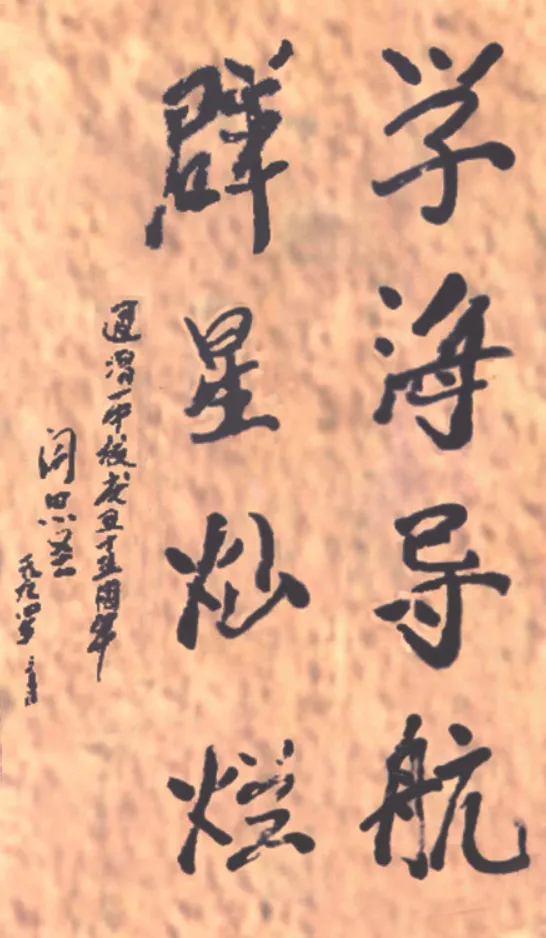 学海导航
群星灿烂
通渭一中校庆五十五周年
一九九四年